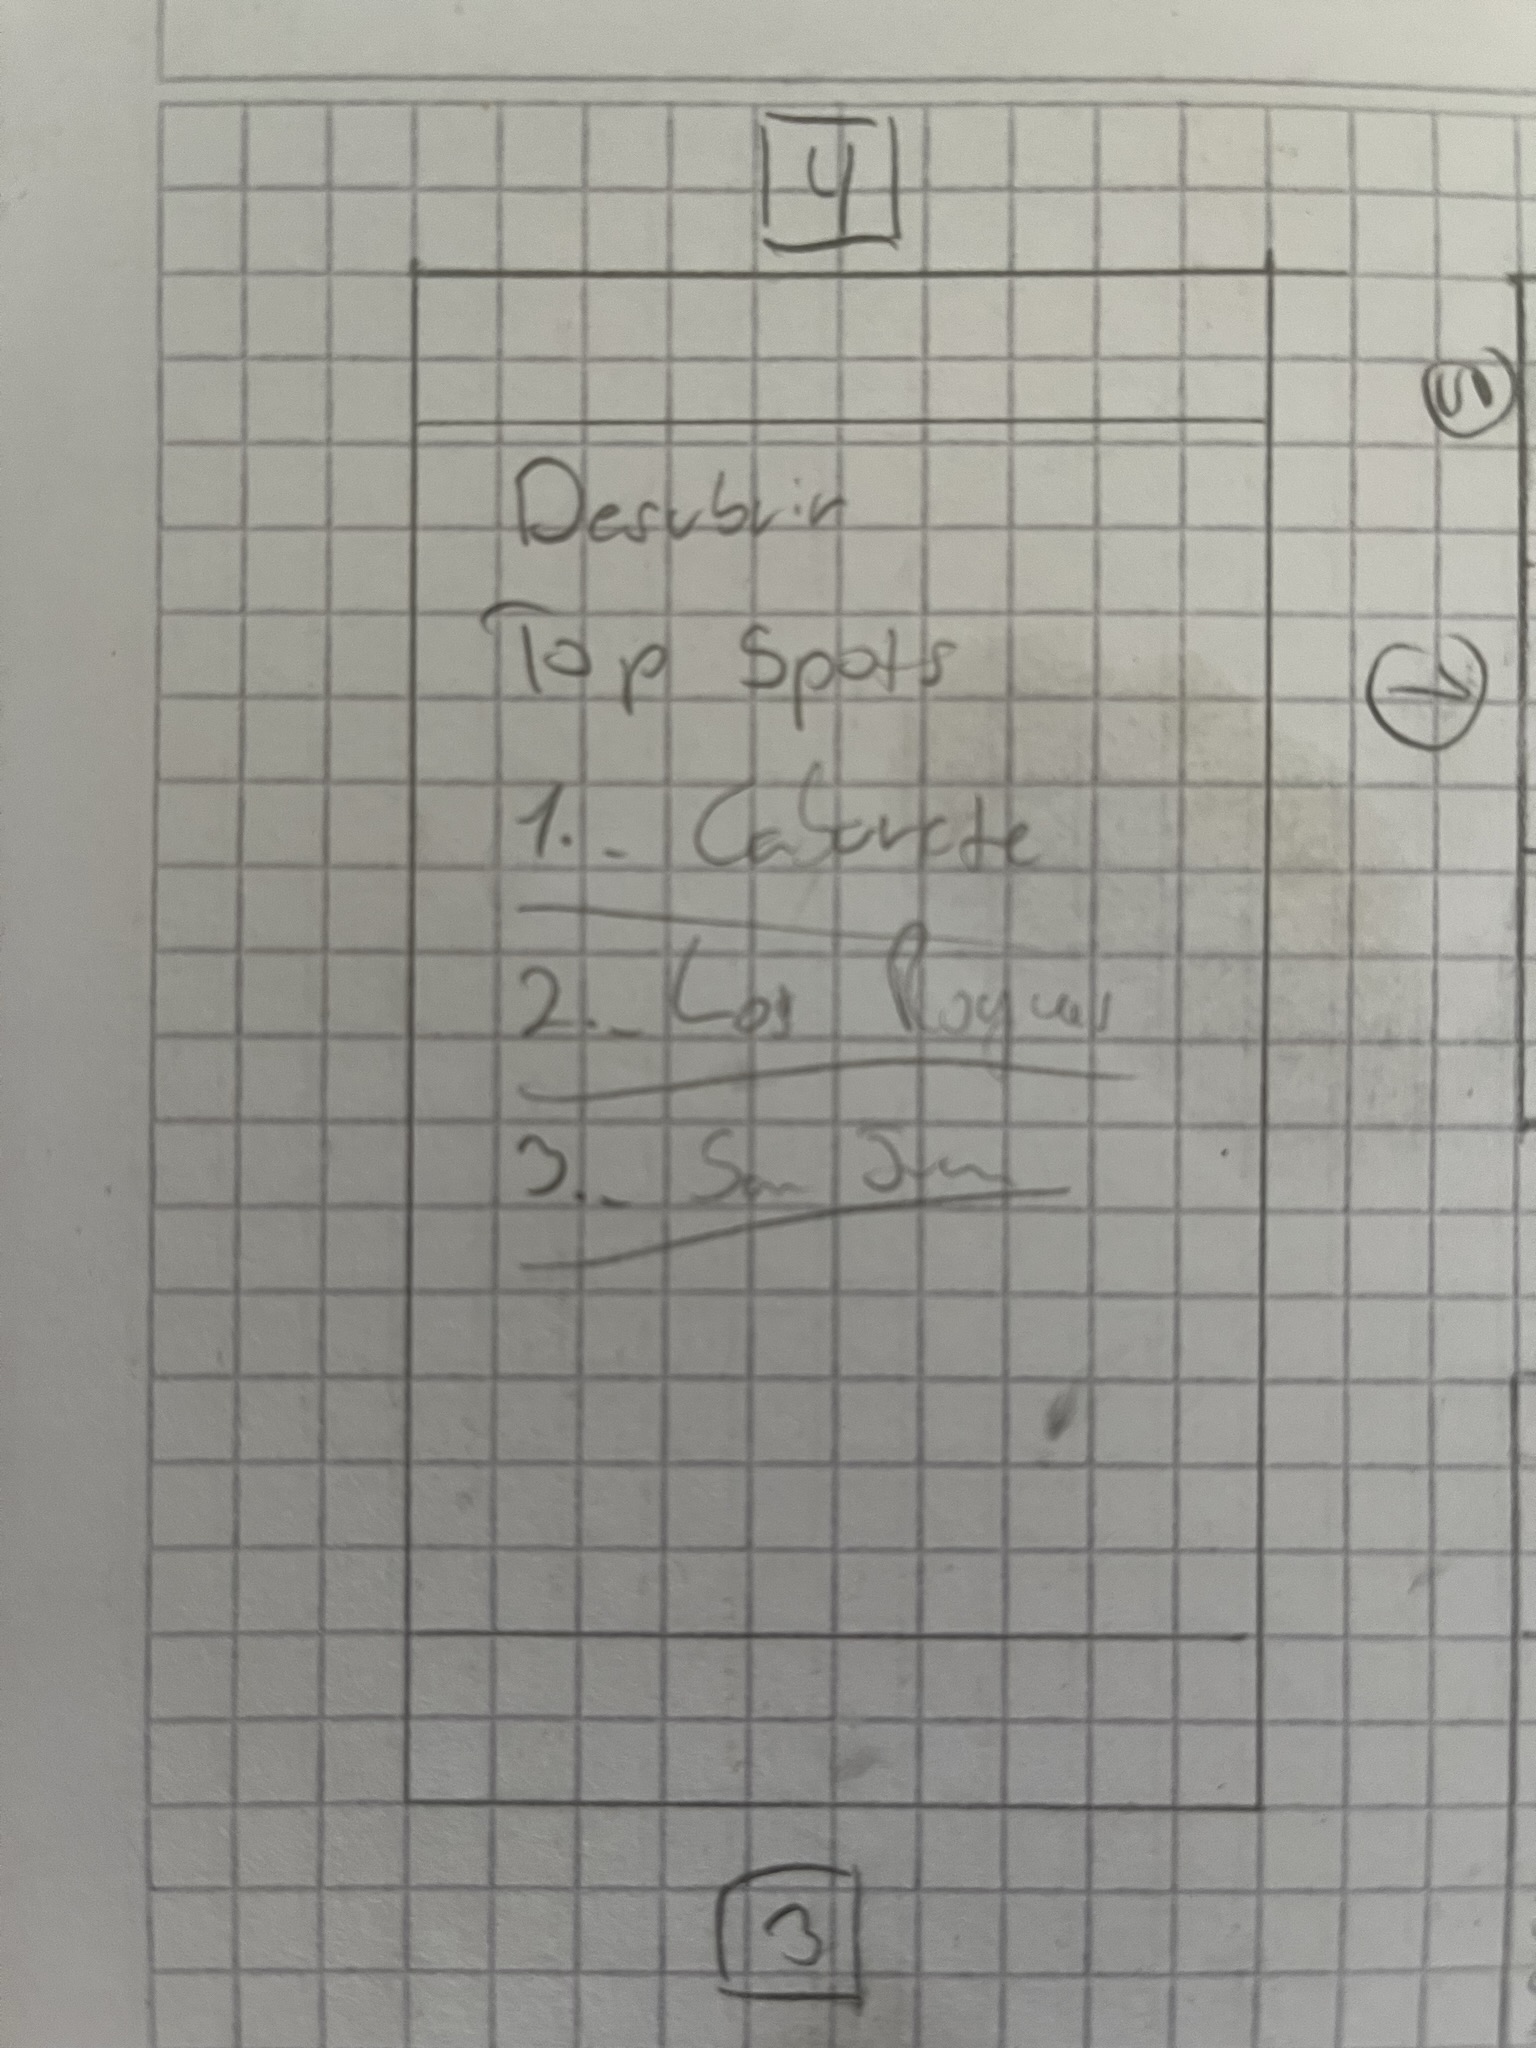 4
Descubrir
Top Spots
1.- Cabarete
2.- Los Roques
3.- San Juan
3
5
1